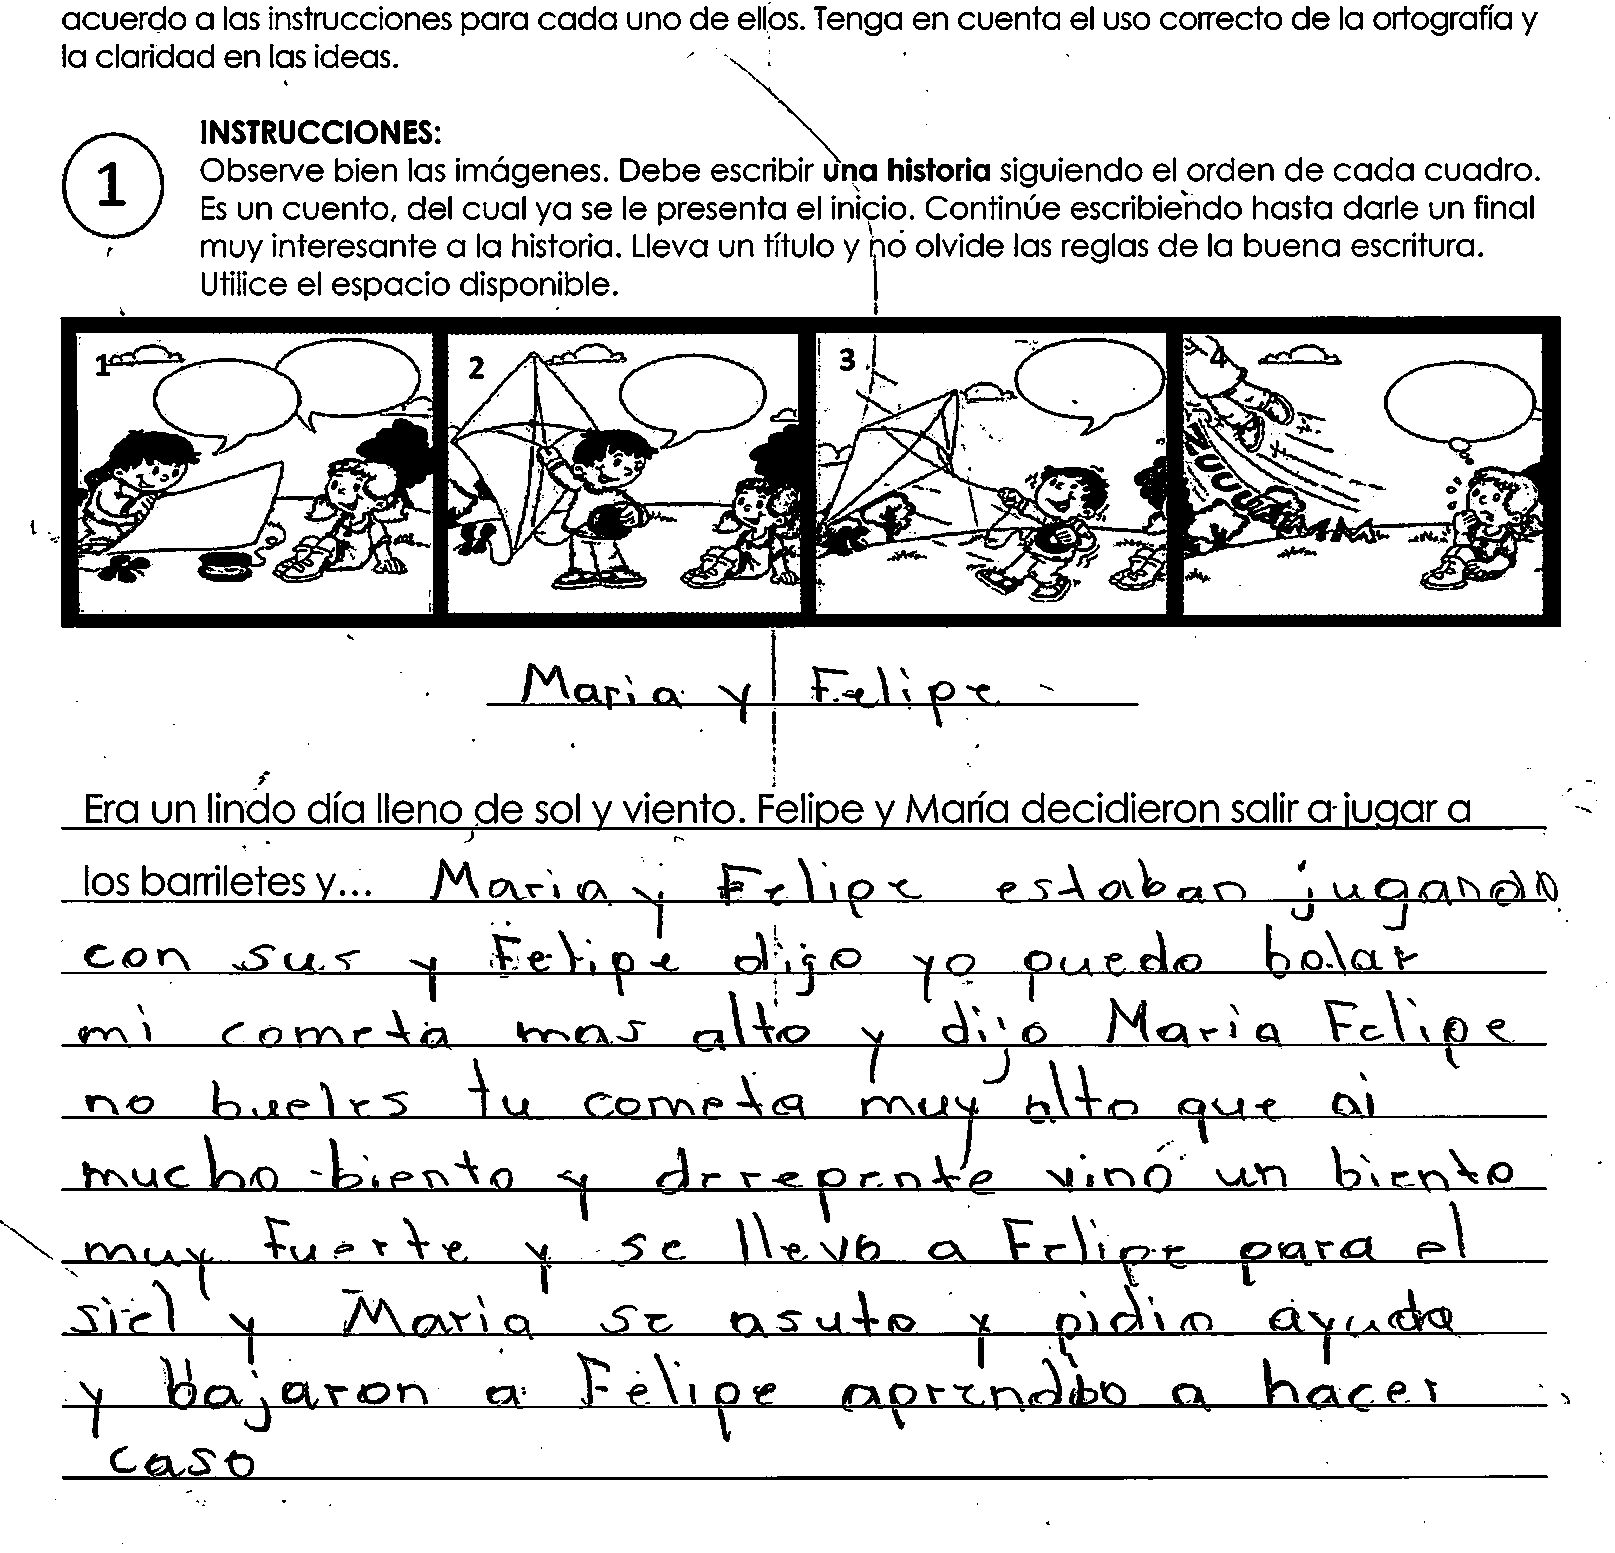 acuerdo a las instrucciones para cada uno de ellos. Tenga en cuenta el uso correcto de la ortografía y
la claridad en las ideas.
1
INSTRUCCIONES:
Observe bien las imágenes. Debe escribir una historia siguiendo el orden de cada cuadro.
Es un cuento, del cual ya se le presenta el inicio. Continúe escribiendo hasta darle un final
muy interesante a la historia. Lleva un título y no olvide las reglas de la buena escritura.
Utilice el espacio disponible.
1 2 3 4
Maria y Felipe
Era un lindo día lleno de sol y viento. Felipe y María decidieron salir a jugar a
los barriletes y... Maria y Felipe estaban jugando
con sus y Felipe dijo yo puedo bolar
mi cometa mas alto y dijo Maria Felipe
no bueles tu cometa muy alto que ai
mucho biento y derrepente vino un biento
muy fuerte y se llevo a Felipe para el
siel y Maria se asuto y pidio ayuda
y bajaron a Felipe aprendio a hacer
caso